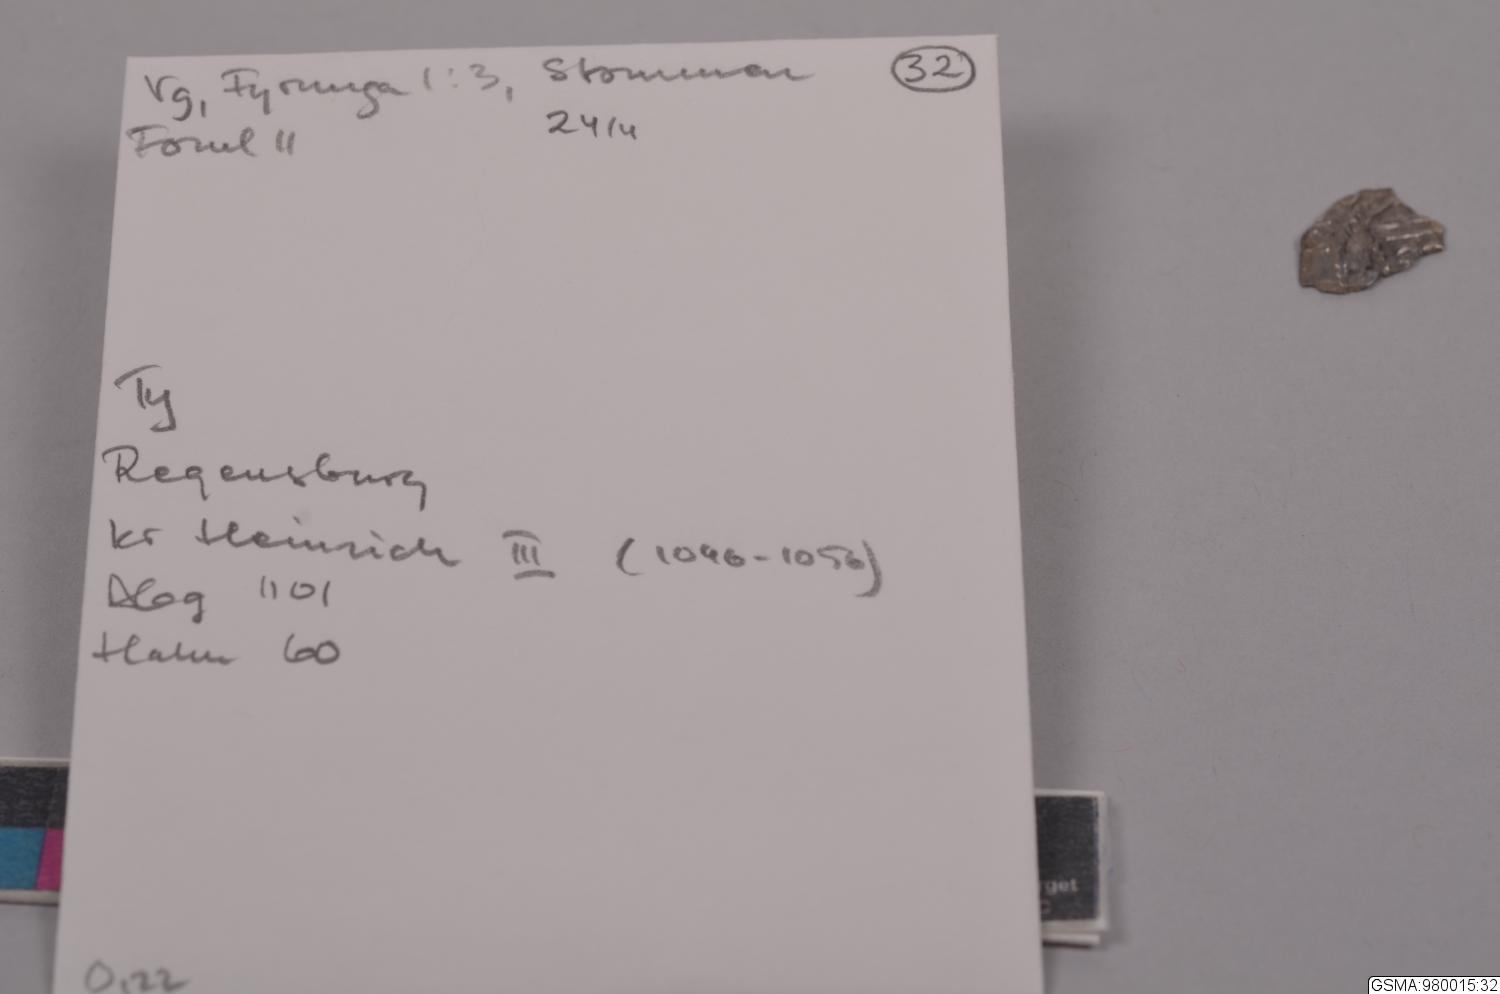 Vg, Fyrunga 1:3, Stommen 32
Fornl 11 24/4
Ty
Regensburg
kr Heinrich III (1046-1056)
Dbg 1101
Hahn 60
0,22
rget
C
GSMA:980015:32